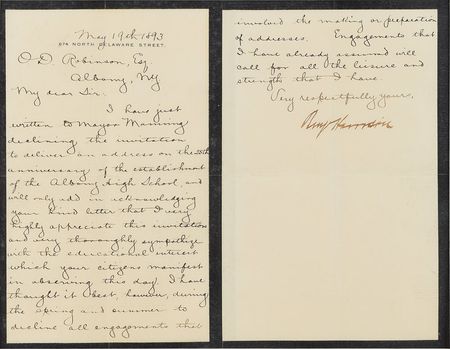 May 19th 1893
674 NORTH DELAWARE STREET.
O. D. Robinson, Esq.
Albany, NY
My dear Sir:
I have just
written to Mayor Manning
declining the invitation
to deliver an address on the 25th
anniversary of the establishment
of the Albany High School, and
will only add in acknowledging
your kind letter that I very
highly appreciate this invitation
and very thoroughly sympathize
with the educational interest
which your citizens manifest
in observing this day. I have
thought it best, however, during
the spring and summer to
decline all engagements that
involved the making or preparation
of addresses. Engagements that
I have already assumed will
call for all the leisure and
strength that I have.
Very respectfully yours,
Benj Harrison